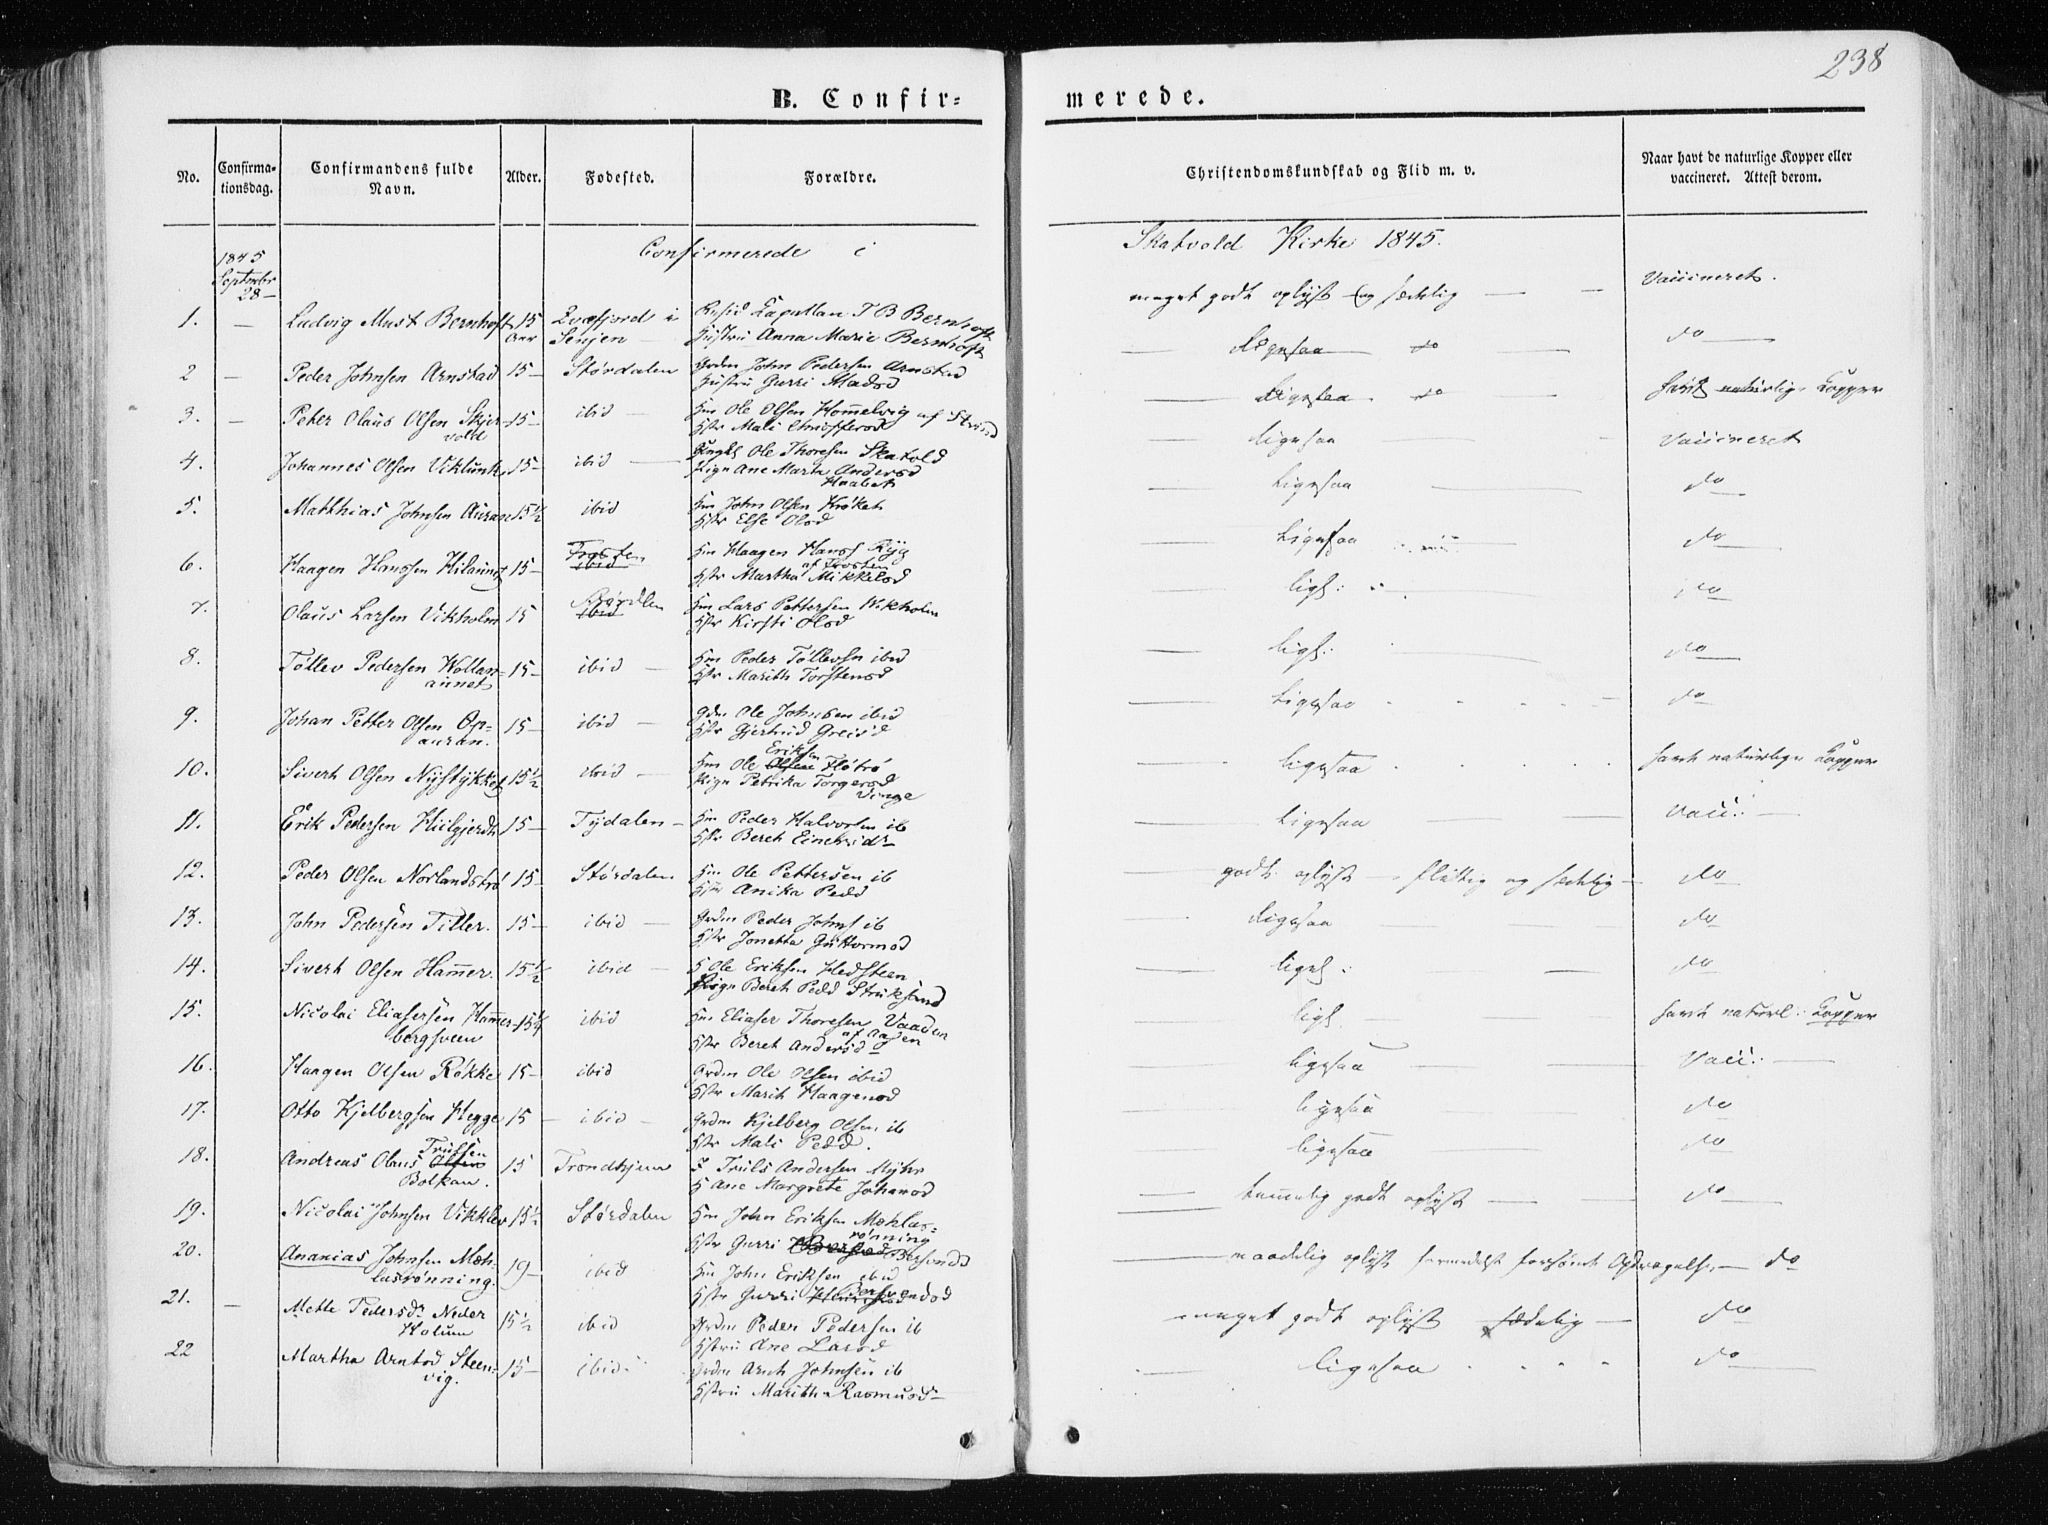 238
B. Confir=
merede.
No.
Confirma=
tionsdag.
Confirmandens fulde
Navn.
Alder.
Fødested.
Forældre.
Christendomskundskab og Flid m. v.
Naar havt de naturlige Kopper eller
vaccineret. Attest derom.
1845
September
28 —
Confirmerede i
Skatvold Kirke 1845.
1. — Ludvig Must Bernhoft 15 Aar
i Senjen
Capellan T B Bernhoft
Hustru Anna Marie Bernhoft
meget godt oplyst og sædelig — Vaccineret.
2 — Peder Johnsen Arnstad 15 — Størdalen
Grdm John Pedersen Arnstad
Hustru Gurri Madsd
Ligesaa do — do
3. — Peter Olaus Olsen Skjer-
vold 15 — ibid —
Hm Ole Olsen Hommelvig af Strind
Hstr Mali
Ligesaa do — havt naturlig Kopper
4. Johannes Olsen 15 — ibid —
Ole Thoresen Skatvold
Pige Ane Marta Andersd
Haabet
ligesaa — Vaccineret
5. Matthias Johnsen Auran 15½ ibid
Hm John Olsen Krøket
Hstr Else Olsd
Ligesaa — do
6. Haagen Hanssen 15 — Frosten
ibid
Hm Haagen Hanss Ryg
af Frosten
Hstr Martha Mikkelsd
Ligesaa do
7. Olaus Larsen Vikholm 15
ibid
Hm Lars Pettersen Wikholm
Hstr Kirsti Olsd
ligs: do
8. Tøllev Pedersen Wollan=
aunet 15 — ibid —
Hm Peder Tøllevsn ibid
Hstr Marith Torstensd
ligs: do
9. Johan Petter Olsen Op=
auran. 15 — ibid —
Grdm Ole Johnsen ibid
Hstr Gjertrud
Ligesaa do
10. Sivert Olsen Nystykket 15½ ibid —
Eriksen
Hm Ole Olsen Fløtrø
Pige Petrika Torgersd
Vinge
ligesaa havt naturlige Kopper
11. Erik Pedersen 15 — Tydalen —
Hm Peder Halvorsen ib
Hstr Beret
Ligesaa — Vacc: —
12. Peder Olsen Norlandstrø 15 — Størdalen
Hm Ole Pettersen ib
Hstr Anika Pedd
godt oplyst — flittig og sædelig — do
13. John Pedersen Tiller. 15 — ibid —
Grdm Peder Johns ib
Hstr Jonetta Guttormsd
Ligesaa do
14. Sivert Olsen Hammer. 15½ ibid —
Ole Eriksen Hedsteen
Pige Beret Pedd
liges: do
15. Nicolai Eliasersen Hammer-
bergsveen 15¼ ibid
Hm Eliaser Thoresen Vaaden
Hstr Beret Andersd
ligs. havt naturl: Kopper
16. Haagen Olsen Røkke 15 — ibid
Grdm Ole Olsen ibid
Hstr Marit Haagensd
ligesaa Vacc: —
17. Otto Kjelbergsen Hegge 15 — ibid —
Grdm Kjelberg Olsen ib
Hstr Mali Pedd.
ligesaa do
18. Andreas Olaus Olsen
Bolkan. 15 Trondhjem
Truls Andersen Myhr
H Ane Margrete Johansd
ligesaa do
19. Nicolai Johnsen Vikklev 15½ Størdalen
Hm John Eriksen Mæhlas=
rønning
Hstr Gurri
temmelig godt oplyst — do
20. Ananias Johnsen Mæh-
lasrønning. 19 — ibid
Hm John Eriksen ibid
Hstr Gurri
maadelig oplyst formedelst forsømt Opdragelse — do
21. — Mette Pedersdr Neder
Holum 15½ ibid
Grdm Peder Pedersen ib
Hstru Ane Larsd
meget godt oplyst sædelig — do
22 Martha Arntsd Steen-
vig. 15 — ibid
Grdm Arnt Johnsen ib
Hstru Marith Rasmusd —
ligesaa do